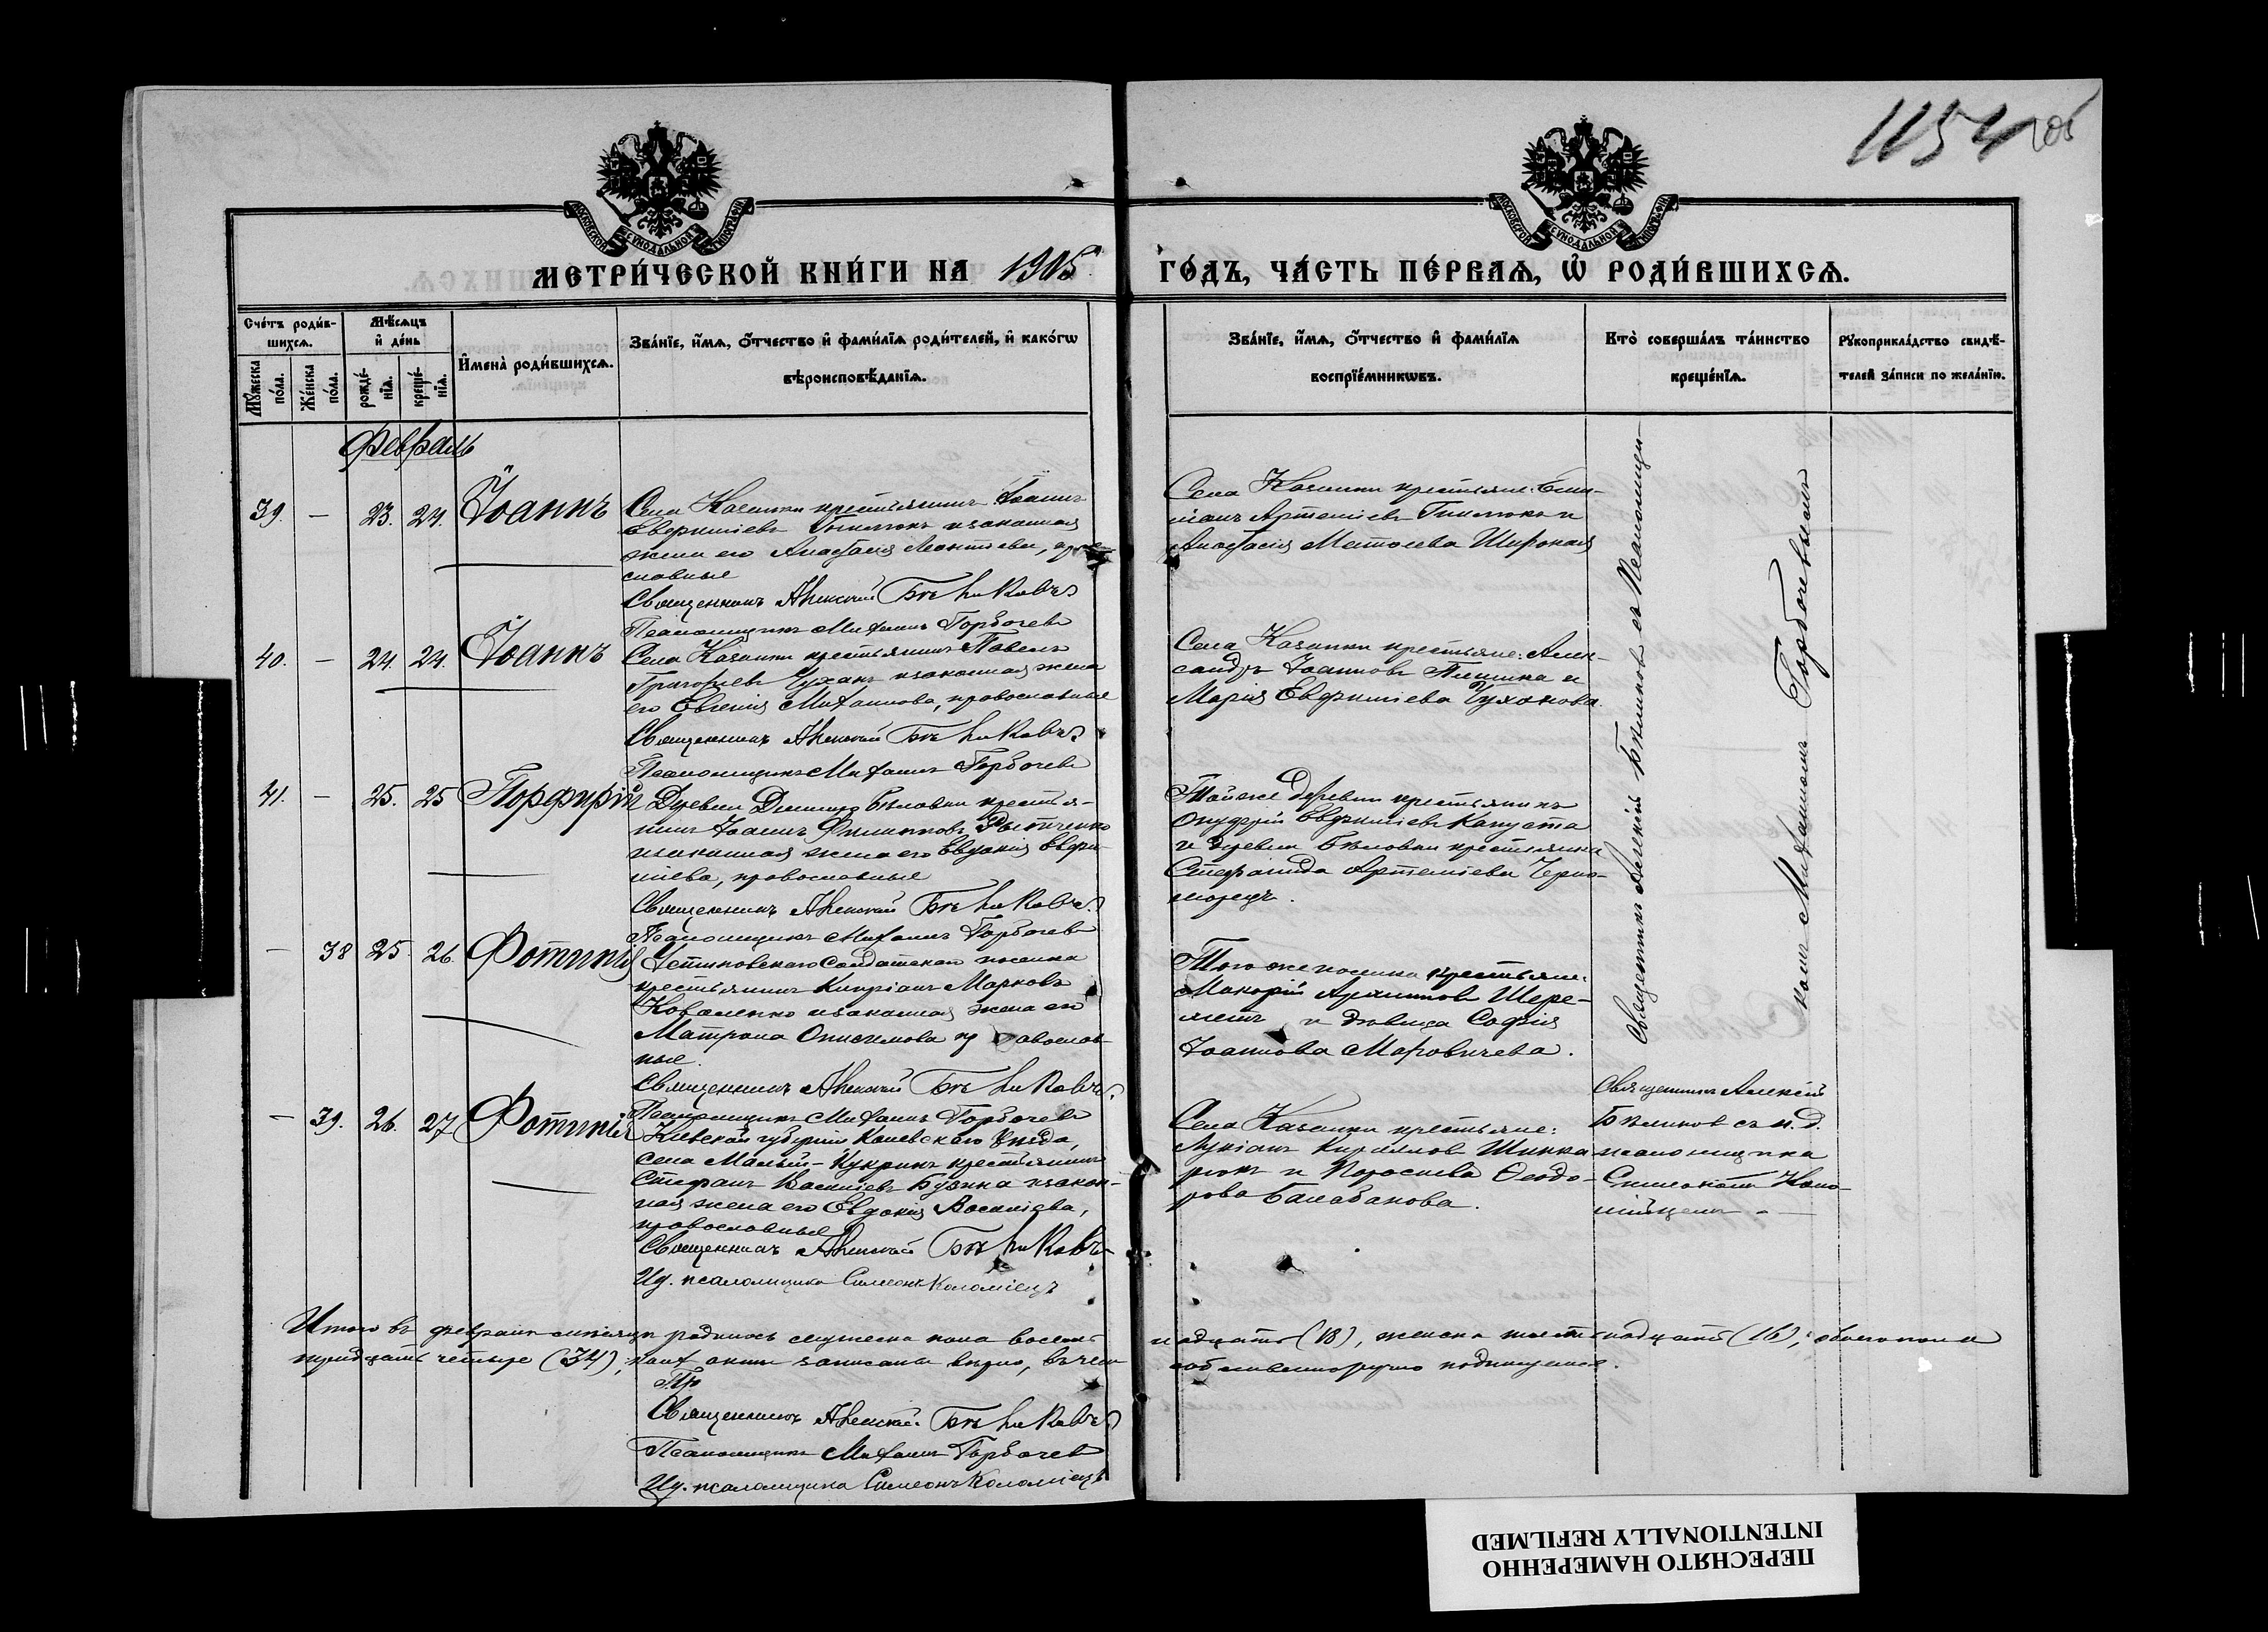 1154 об
МОСКОВСКОЙ СѴНОДАЛЬНОЙ ТИПОГРАФІИ
МОСКОВСКОЙ СѴНОДАЛЬНОЙ ТИПОГРАФІИ
МЕТРИ́ЧЕСКОЙ КНИ́ГИ НА 1905 ГО́ДЪ, ЧА́СТЬ ПЕ́РВАѦ, Ѽ РОДИ́ВШИХСѦ.
Сче́тъ роди́в-
шихсѧ.
Мꙋ́жеска по́ла.
Же́нска по́ла.
Мѣ́сѧцъ и҆ де́нь
рожде́-
нїѧ.
креще́-
нїѧ.
И҆мена̀ роди́вшихсѧ.
Зва́нїе, и҆́мѧ, ѻ҆́тчество и҆ фами́лїѧ роди́телей, и҆ како́гѡ
вѣроисповѣ́данїѧ.
Зва́нїе, и҆́мѧ, ѻ҆́тчество и҆ фами́лїѧ
воспрїе́мникѡвъ.
Кто̀ соверша́лъ та́инство
креще́нїѧ.
Рꙋкоприкла́дство свидѣ́-
телей за́писи по жела́нїю.
Февраль
39. — 23. 24. Іоаннъ
Села Казанки крестьянинъ Іоаннъ
Евфиміевъ и законная
жена его Анастасія Леонтіева, право-
славные
Священникъ Алексѣй Бѣликовъ
Псаломщикъ Михаилъ Горбачевъ
Села Казанки крестьяне:
Артеміевъ и
Анастасія Широкая
40. — 24. 24. Іоаннъ
Села Казанки крестьянинъ Павелъ
Григорьевъ Чуханъ и законная жена
его Евгенія Михаилова, православные
Священникъ Алексѣй Бѣликовъ
Псаломщикъ Михаилъ Горбачевъ
Села Казанки крестьяне: Алек-
сандръ Іоанновъ и
Марія Евфиміева Чуханова.
41. — 25. 25 Порфирій
Деревни крестья-
нинъ Іоаннъ Филипповъ
и законная жена его Евдокія Евфи-
міева, православные
Священникъ Алексѣй Бѣликовъ
Псаломщикъ Михаилъ Горбачевъ
Той же деревни крестьянинъ
Евфиміевъ Капуста
и деревни Бѣловки крестьянка
Стефанида Артеміева Черно-
морецъ.
— 38 25 26 Фотинія
Устиновскаго Солдатскаго поселка
крестьянинъ Кипріанъ Марковъ
Коваленко и законная жена его
Матрона Онисимова православ-
ные.
Священникъ Алексѣй Бѣликовъ
Псаломщикъ Михаилъ Горбачевъ
Того же поселка крестьяне:
Макарій Архиповъ Шере-
метъ и дѣвица Софія
Іоаннова Маровичева.
Священникъ Алексѣй Бѣликовъ съ Псаломщи-
комъ Михаиломъ Горбачевымъ
— 39. 26. 27 Фотинія
Кіевской губерніи Каневскаго уѣзда,
села Малый-Букринъ крестьянинъ
Стефанъ Василіевъ и закон-
ная жена его Евдокія Василіева,
православные
Священникъ Алексѣй Бѣликовъ
И.д. псаломщика Симеонъ Коломіецъ
Села Казанки крестьяне:
Лукіанъ Кирилловъ Шинка-
рюкъ и Параскева Ѳеодо-
рова Балабанова.
Священникъ Алексѣй
Бѣликовъ съ и.д.
псаломщика
Симеономъ Коло-
мійцемъ
Итого въ февралѣ мѣсяцѣ родилось мужеска пола восем-
надцать (18), женска шестнадцать (16), обоего пола
тридцать четыре (34), акты записаны вѣрно, въ чемъ
собственноручно подписуемся.
Священникъ Алексѣй Бѣликовъ
Псаломщикъ Михаилъ Горбачевъ
И.д. псаломщика Симеонъ Коломіецъ
ПЕРЕСНЯТО НАМЕРЕННО
INTENTIONALLY REFILMED